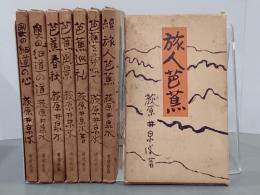 奥の細道の心
荻原井泉水
奥の細道の道
荻原井泉水
芭蕉春秋
荻原井泉水
芭蕉風景
荻原井泉水
芭蕉巡礼
荻原井泉水
芭蕉を尋ねて
荻原井泉水
續旅人芭蕉
荻原井泉水
旅人芭蕉
荻原井泉水著